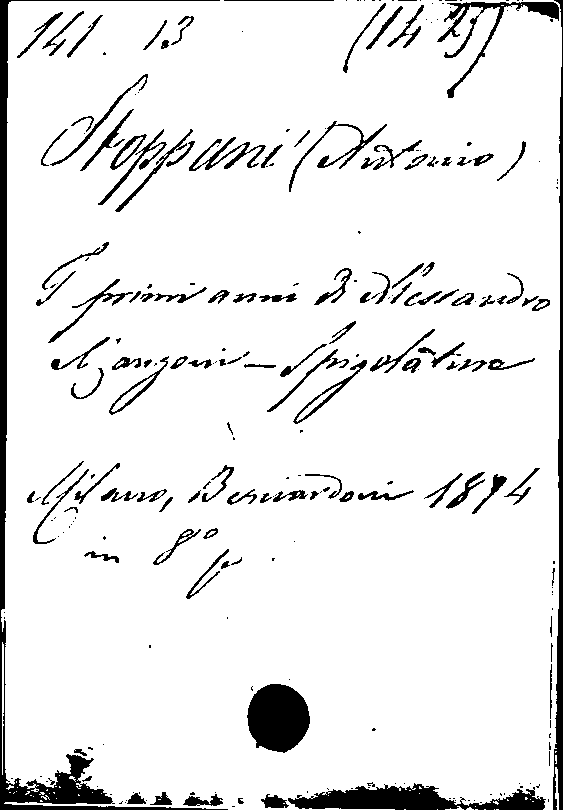 141. 13 (1425)
Stoppani (Antonio)
I primi anni di Alessandro
Manzoni - Spigolature
Milano, Bernardoni 1874
in 8º p.